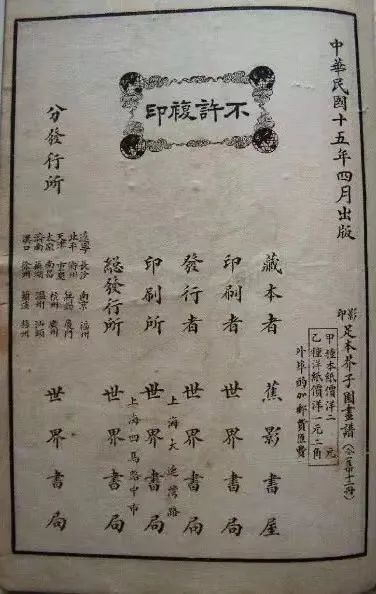 中華民國十五年四月出版
影印足本芥子園畫譜
甲種本紙價洋二元
乙種洋紙價洋一元二角
外埠酌加郵費匯費
不許複印
藏本者 蕉影書屋
印刷者 世界書局
發行者 世界書局
印刷所 上海大連灣路 世界書局
總發行所 上海四馬路中市 世界書局
分發行所
遼寧 長沙 南京 福州
北平 衡州
天津 重慶 無錫 廈門
太原 南昌 杭州 廣州
濟南 蕪湖 溫州 汕頭
漢口 徐州 蘭谿 梧州